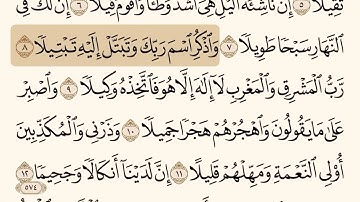 ثَقِيلًا ٥ إِنَّ نَاشِئَةَ ٱلَّيْلِ هِيَ أَشَدُّ وَطْـًٔا وَأَقْوَمُ قِيلًا ٦ إِنَّ لَكَ فِى
ٱلنَّهَارِ سَبْحًا طَوِيلًا ٧ وَٱذْكُرِ ٱسْمَ رَبِّكَ وَتَبَتَّلْ إِلَيْهِ تَبْتِيلًا ٨
رَّبُّ ٱلْمَشْرِقِ وَٱلْمَغْرِبِ لَآ إِلَٰهَ إِلَّا هُوَ فَٱتَّخِذْهُ وَكِيلًا ٩ وَٱصْبِرْ
عَلَىٰ مَا يَقُولُونَ وَٱهْجُرْهُمْ هَجْرًا جَمِيلًا ١٠ وَذَرْنِى وَٱلْمُكَذِّبِينَ
أُو۟لِى ٱلنَّعْمَةِ وَمَهِّلْهُمْ قَلِيلًا ١١ إِنَّ لَدَيْنَآ أَنكَالًا وَجَحِيمًا ١٢
٥٧٤